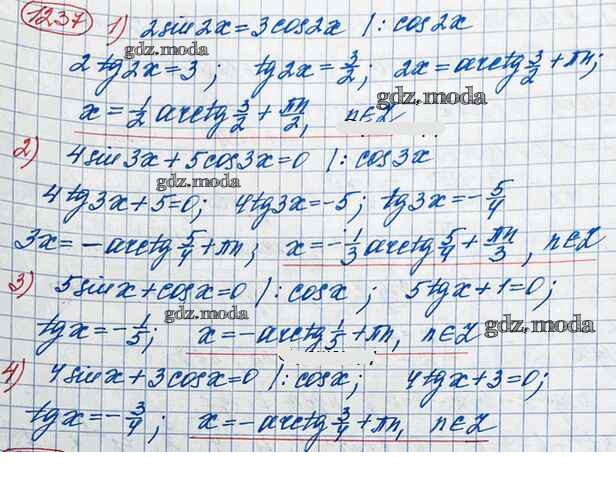 1237 1) 2sin2x=3cos2x /:cos2x
2tg2x=3; tg2x=3/2; 2x=arctg3/2+πn;
gdz.moda
x=1/2 arctg3/2+πn/2, n∈Z
2) 4sin3x+5cos3x=0 /:cos3x
gdz.moda
4tg3x+5=0; 4tg3x=-5; tg3x=-5/4
3x=-arctg5/4+πn; x=-1/3 arctg5/4+πn/3, n∈Z
3) 5sinx+cosx=0 /:cosx; 5tgx+1=0;
gdz.moda
tgx=-1/5; x=-arctg1/5+πn, n∈Z gdz.moda
4) 4sinx+3cosx=0 /:cosx; 4tgx+3=0;
tgx=-3/4; x=-arctg3/4+πn, n∈Z